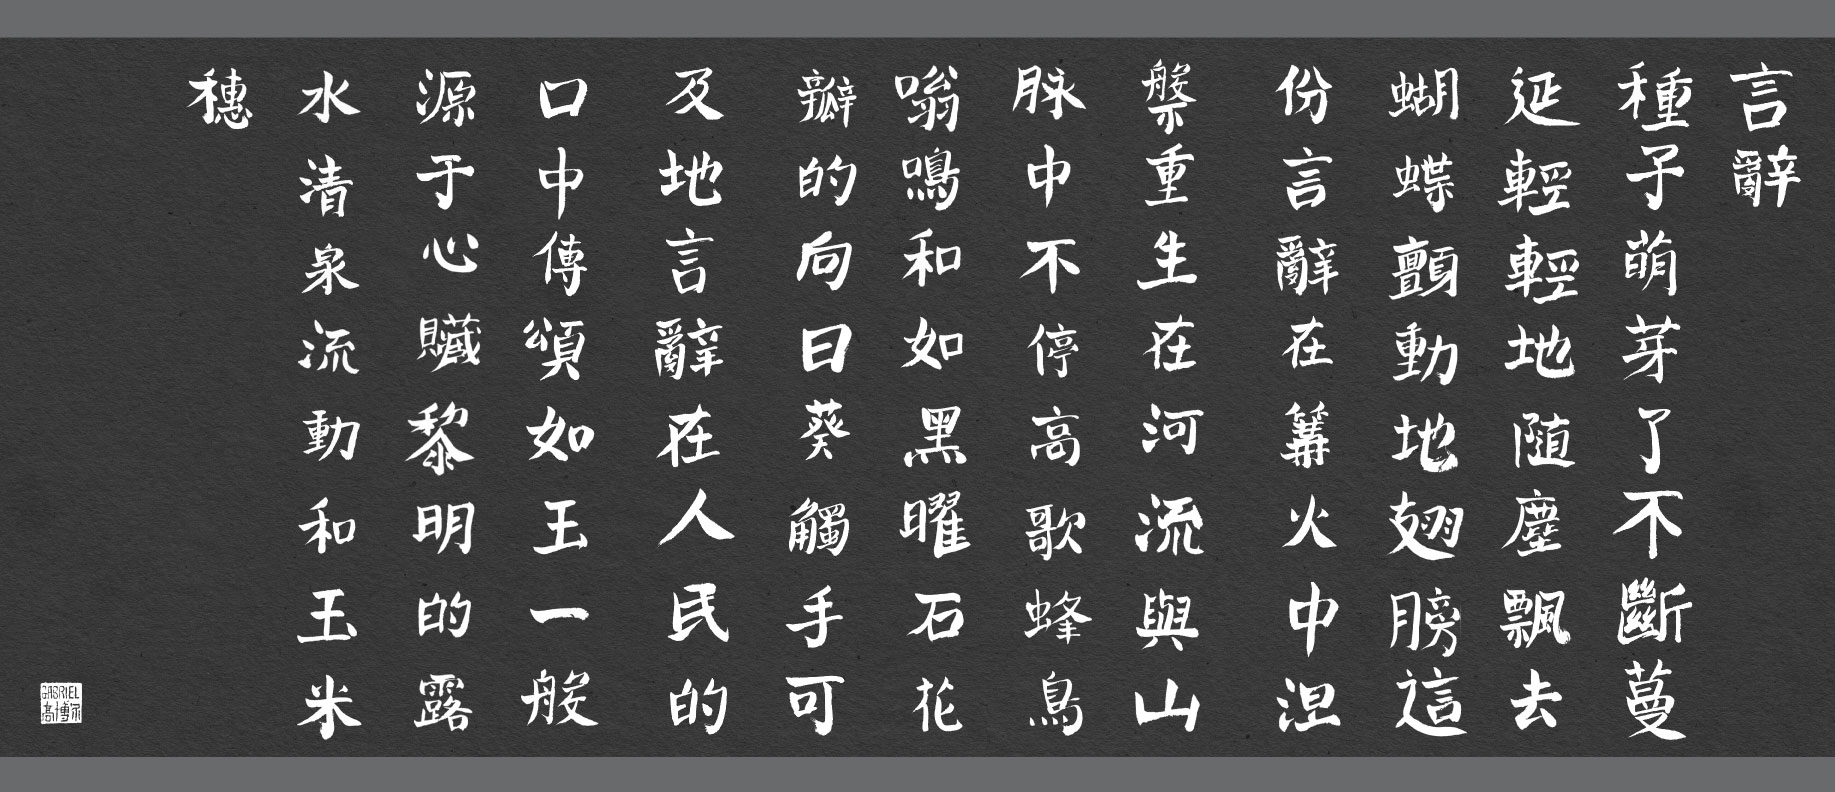 言辭
種子萌芽了不斷蔓
延輕輕地随塵飄去
蝴蝶顫動地翅膀這
份言辭在篝火中涅
槃重生在河流與山
脉中不停高歌蜂鳥
嗡鳴和如黑曜石花
瓣的向日葵觸手可
及地言辭在人民的
口中傳頌如玉一般
源于心贜黎明的露
水清泉流動和玉米
穗
GABRIEL
高博